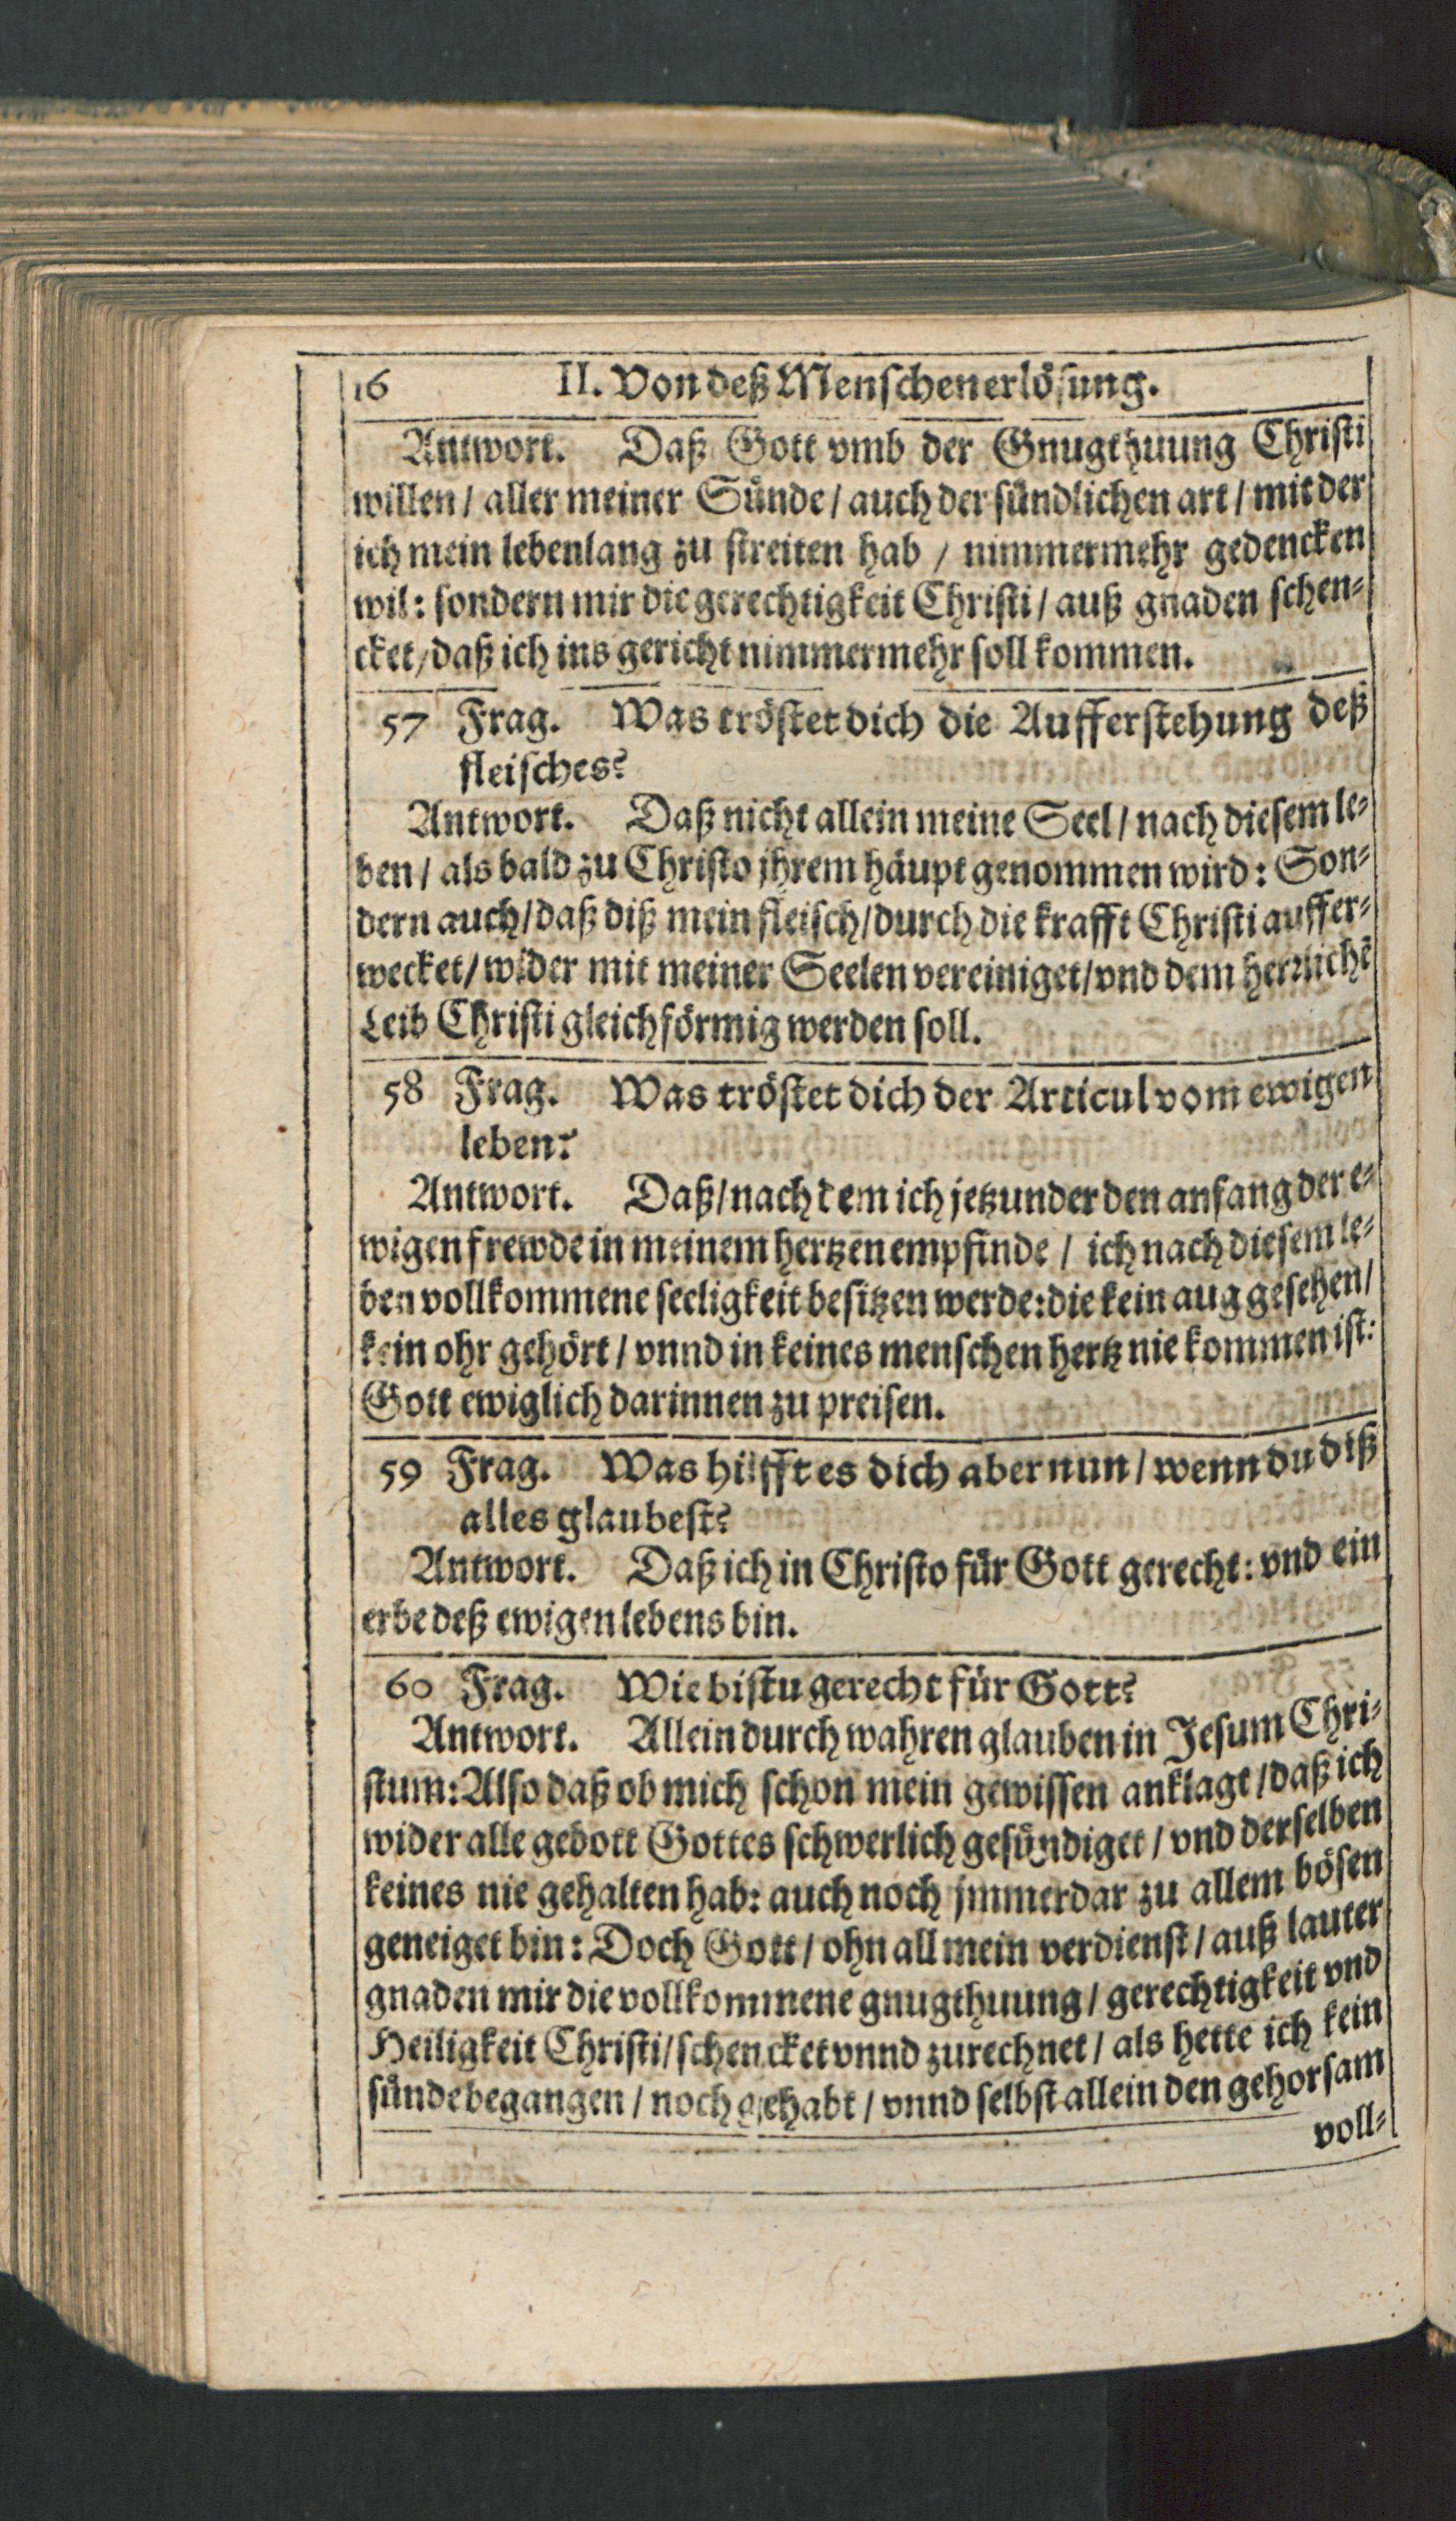 16 II. Von deß Menschen erlösung.
Antwort. Daß Gott vmb der Gnugthuung Christi
willen / aller meiner Sünde / auch der sündlichen art / mit der
ich mein lebenlang zu streiten hab / nimmermehr gedencken
wil: sondern mir die gerechtigkeit Christi / auß gnaden schen-
cket / daß ich ins gericht nimmermehr soll kommen.
57 Frag. Was tröstet dich die Aufferstehung deß
fleisches?
Antwort. Daß nicht allein meine Seel / nach diesem le-
ben / als bald zu Christo jhrem häupt genommen wird: Son-
dern auch / daß diß mein fleisch / durch die krafft Christi auffer-
wecket / wider mit meiner Seelen vereiniget / vnd dem herrlichē
Leib Christi gleichförmig werden soll.
58 Frag. Was tröstet dich der Articul vom ewigen
leben?
Antwort. Daß / nach dem ich jetzunder den anfang der e-
wigen frewde in meinem hertzen empfinde / ich nach diesem le-
ben vollkommene seeligkeit besitzen werde: die kein aug gesehen /
kein ohr gehört / vnnd in keines menschen hertz nie kommen ist:
Gott ewiglich darinnen zu preisen.
59 Frag. Was hilfft es dich aber nun / wenn du diß
alles glaubest?
Antwort. Daß ich in Christo für Gott gerecht: vnd ein
erbe deß ewigen lebens bin.
60 Frag. Wie bistu gerecht für Gott?
Antwort. Allein durch wahren glauben in Jesum Chri-
stum: Also daß ob mich schon mein gewissen anklagt / daß ich
wider alle gebott Gottes schwerlich gesündiget / vnd derselben
keines nie gehalten hab: auch noch jmmerdar zu allem bösen
geneiget bin: Doch Gott / ohn all mein verdienst / auß lauter
gnaden mir die vollkommene gnugthuung / gerechtigkeit vnd
Heiligkeit Christi / schencket vnnd zurechnet / als hette ich kein
sünde begangen / noch gehabt / vnnd selbst allein den gehorsam
voll-